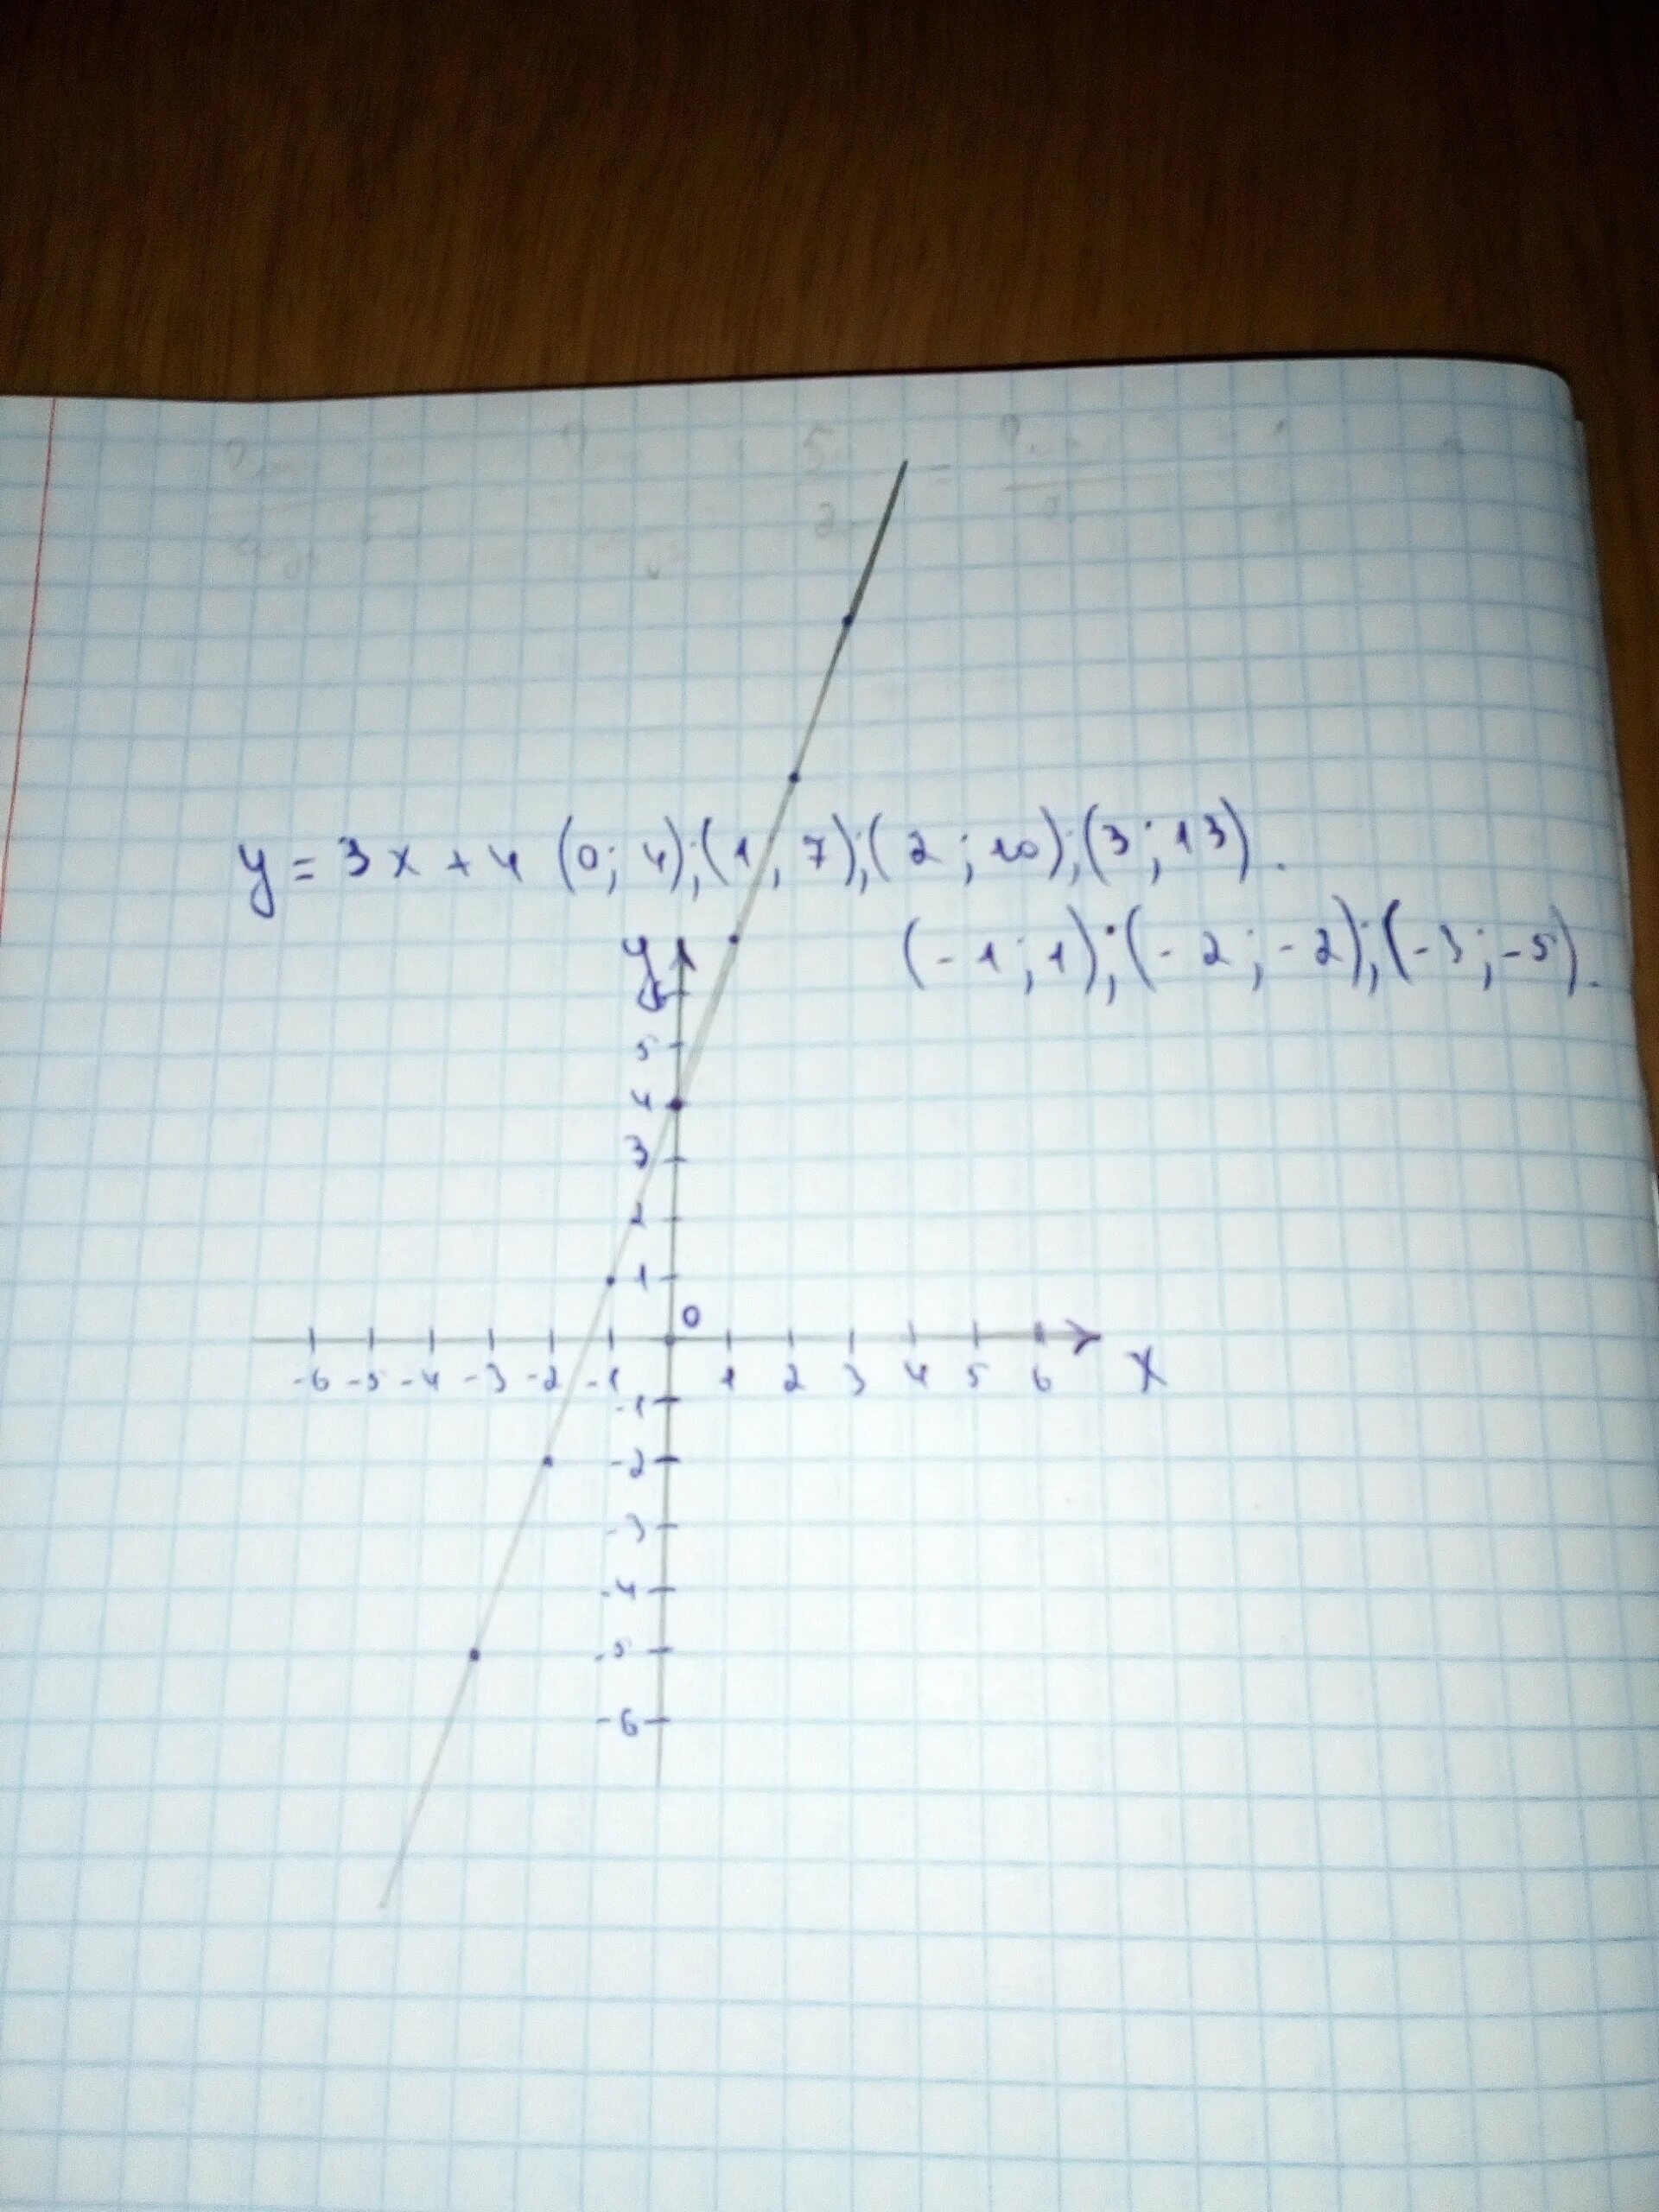 y = 3x + 4 (0; 4); (1; 7); (2; 10); (3; 13).
(-1; 1); (-2; -2); (-3; -5).
y
6
5
4
3
2
1
0
-6 -5 -4 -3 -2 -1 1 2 3 4 5 6 x
-1
-2
-3
-4
-5
-6